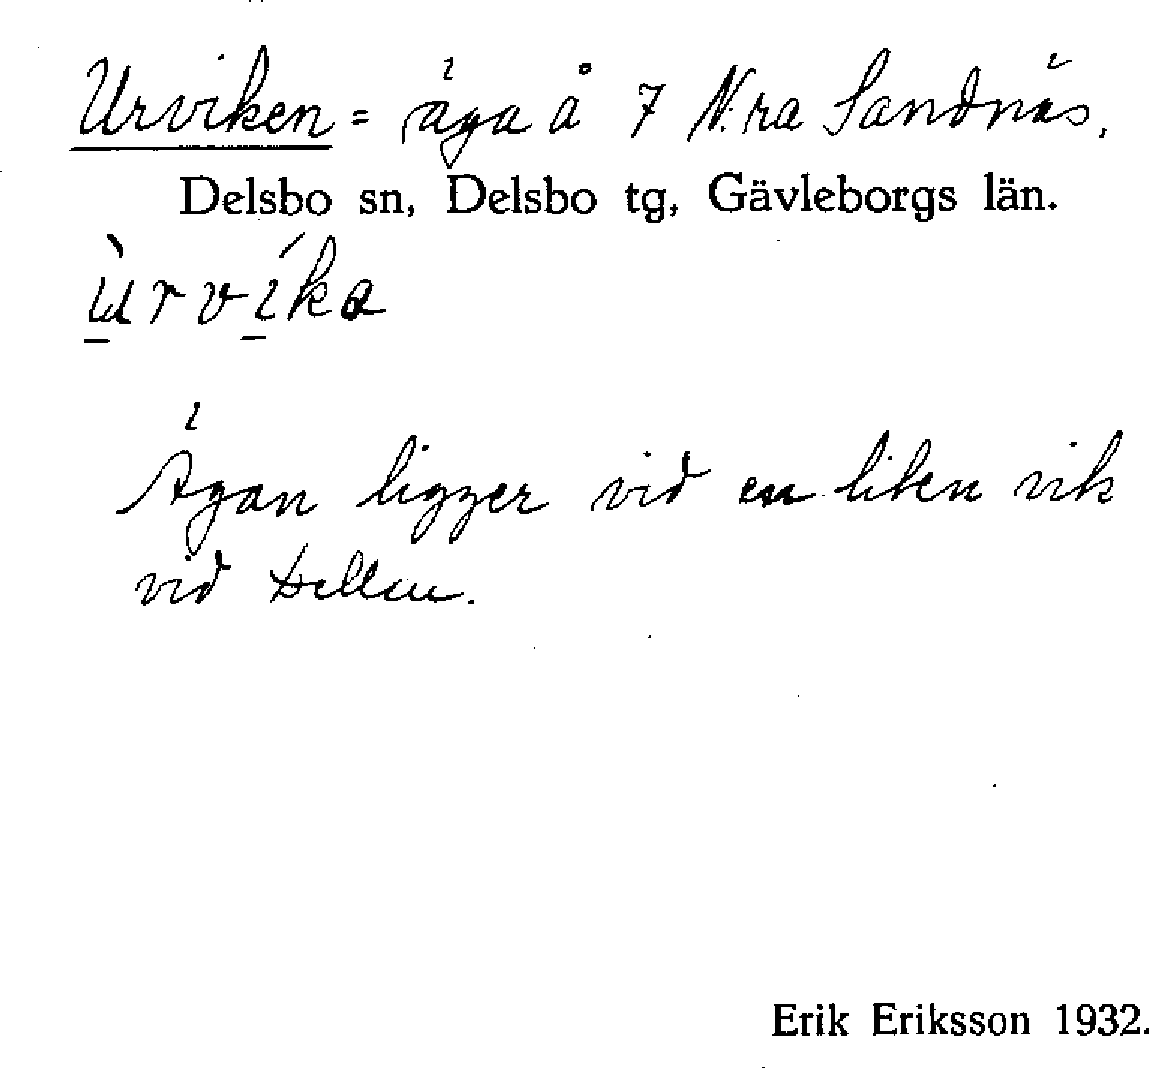 Urviken = äga å 7 N:ra Sandnäs.
Delsbo sn, Delsbo tg, Gävleborgs län.
ùrvíka
Ägan ligger vid en liten vik
vid Dellen.
Erik Eriksson 1932.